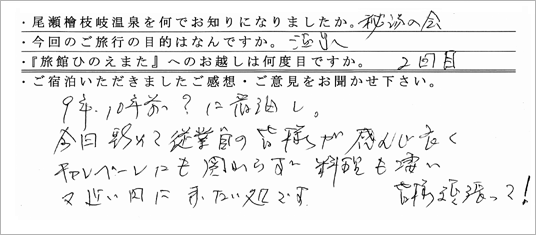 ・尾瀬檜枝岐温泉を何でお知りになりましたか。秘湯の会
・今回のご旅行の目的はなんですか。
・『旅館ひのえまた』へのお越しは何度目ですか。 2回目
・ご宿泊いただきましたご感想・ご意見をお聞かせ下さい。
9年、10年前?に宿泊し。
今回改めて従業員の皆様が感じ良く
にも関わらず料理も凄い
又近い内に来たい処です 皆様頑張って!